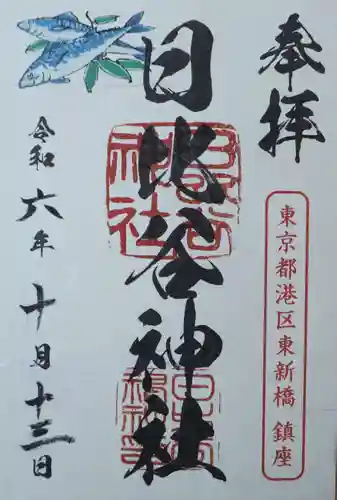 奉拝
東京都港区東新橋 鎮座
日比谷神社
令和六年十月十三日